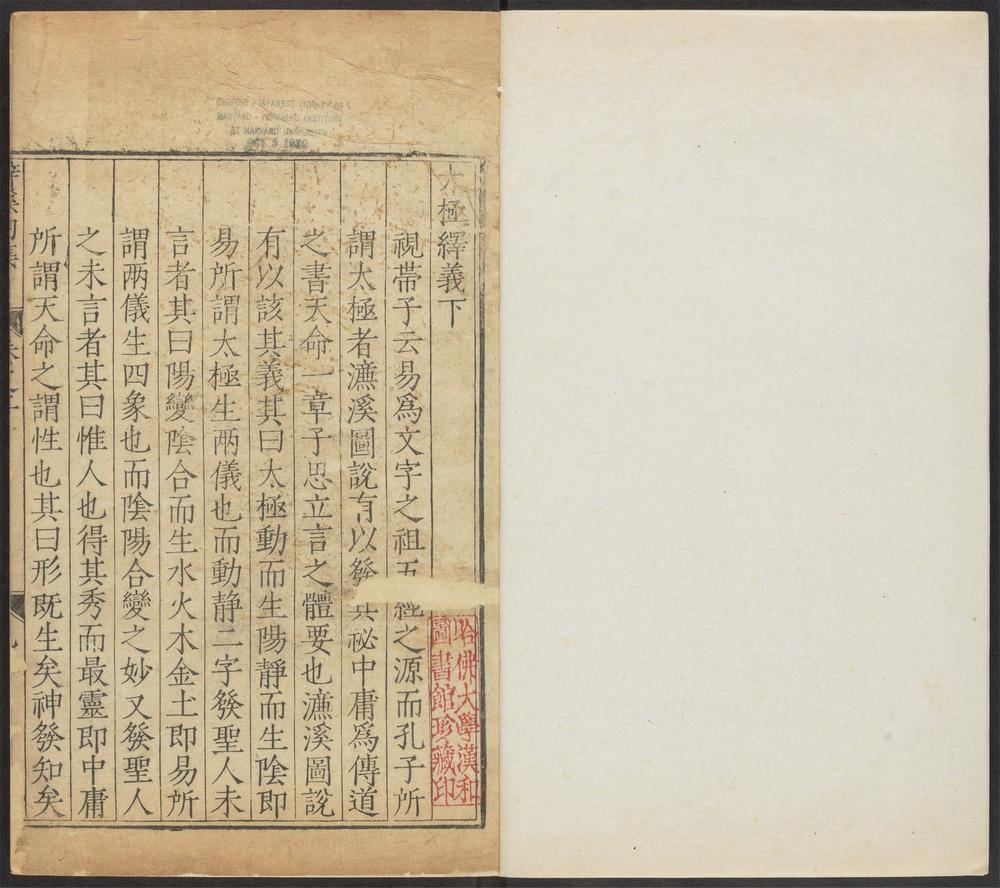 太極繹義下
視帯子云易爲文字之祖五經之源而孔子所
謂太極者濂溪圖說有以發其祕中庸爲傳道
之書天命一章子思立言之體要也濂溪圖說
有以該其義其曰太極動而生陽靜而生陰即
易所謂太極生兩儀也而動靜二字發聖人未
言者其曰陽變陰合而生水火木金土即易所
謂兩儀生四象也而陰陽合變之妙又發聖人
之未言者其曰惟人也得其秀而最靈即中庸
所謂天命之謂性也其曰形既生矣神發知矣
哈佛大學漢和
圖書館珍藏印
CHINESE - JAPANESE LIBRARY OF
HARVARD - YENCHING INSTITUTE
AT HARVARD UNIVERSITY
OCT 5